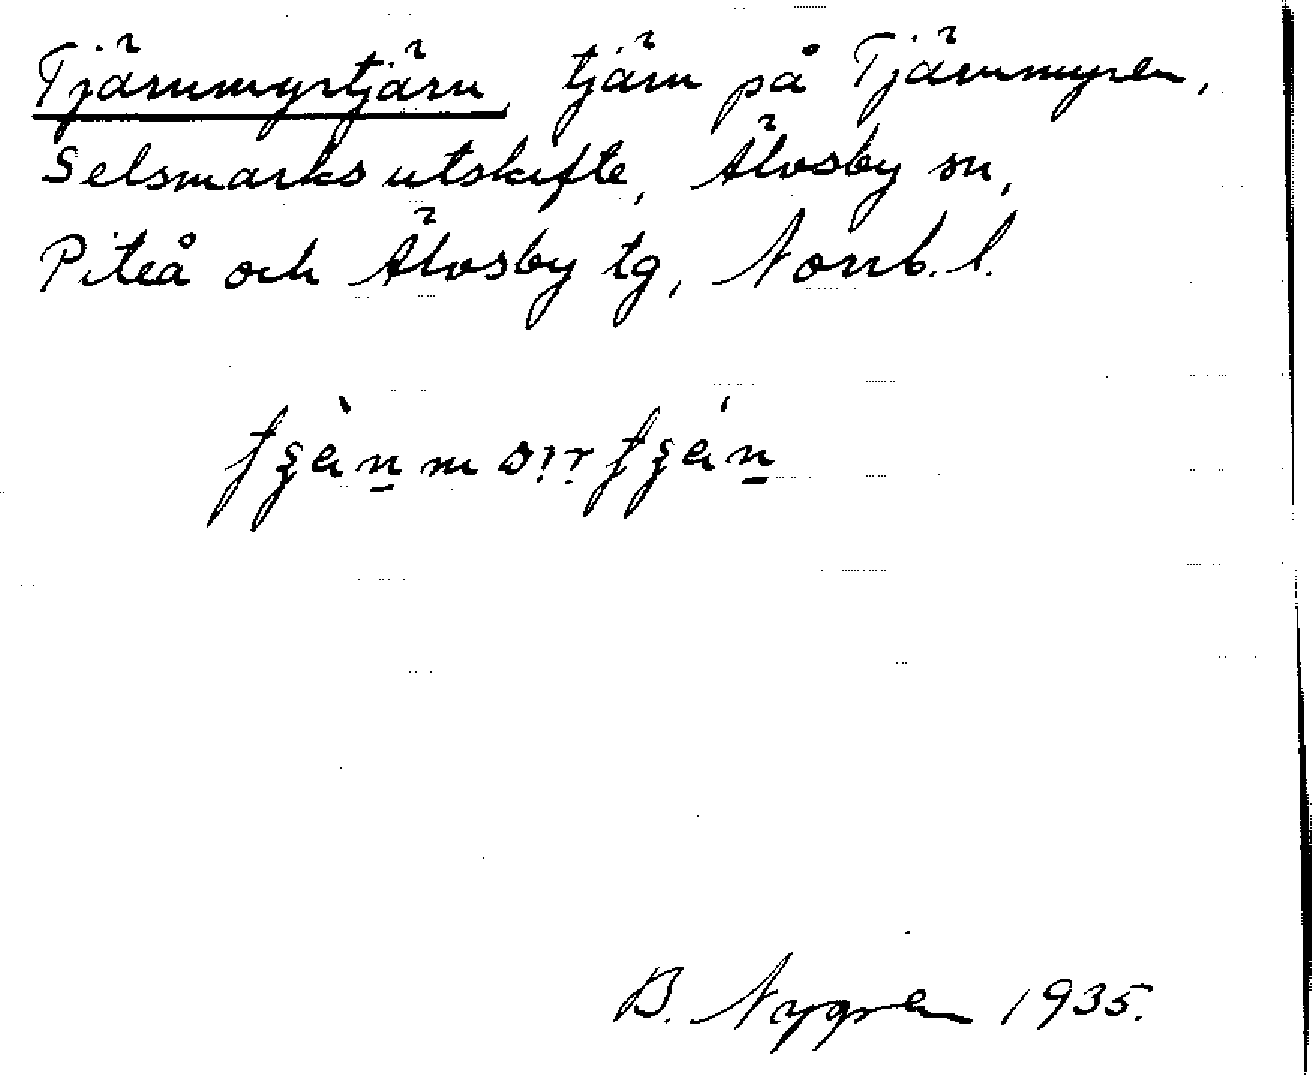 Tjärnmyrtjärn, tjärn på Tjärnmyren,
Selsmarks utskifte, Älvsby sn,
Piteå och Älvsby tg, Norrb. l.
B. Nygren 1935.